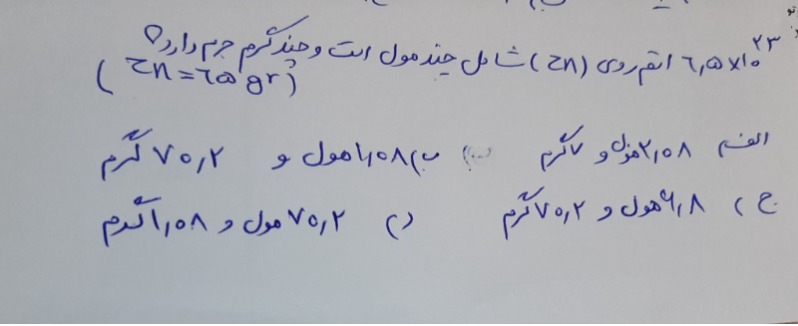 ۶٫۵×۱۰^۲۳ اتم روی (Zn) شامل چند مول است و چند گرم جرم دارد؟
(Zn=۶۵ gr)
الف ۲٫۰۸ مول و ۷ گرم ب) ۱٫۰۸ مول و ۷۰٫۲ گرم
ج) ۶٫۸ مول و ۷۰٫۲ گرم د) ۷۰٫۲ مول و ۱٫۰۸ گرم